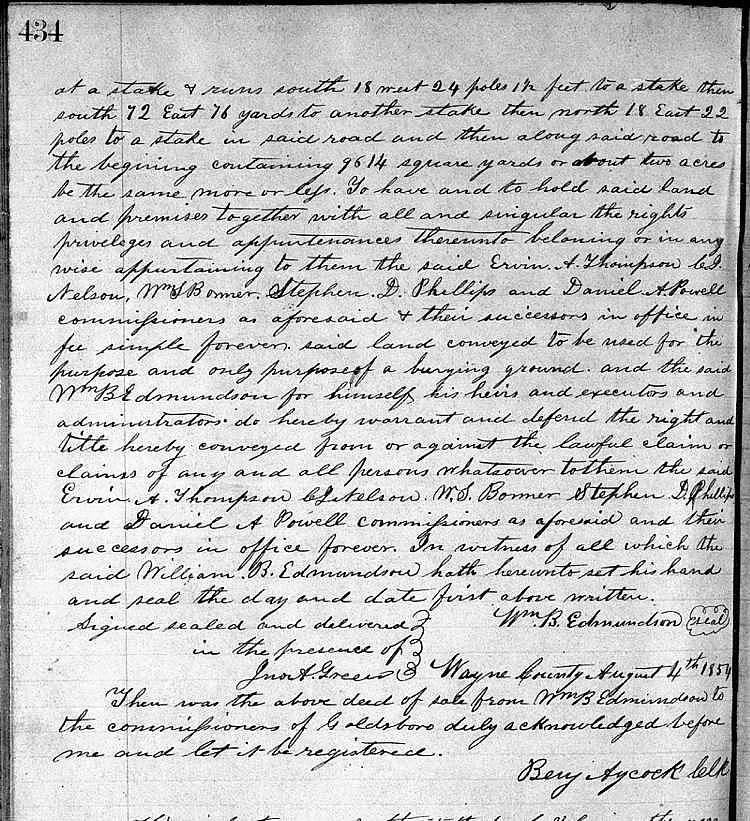 434
at a stake & runs south 18 west 24 poles 1½ feet to a stake then
south 72 East 76 yards to another stake then north 18 East 22
poles to a stake in said road and then along said road to
the begining containing 9614 square yards or about two acres
be the same more or less. To have and to hold said land
and premises together with all and singular the rights
priveleges and appurtenances thereunto beloning or in any
wise appurtaining to them the said Ervin. A. Thompson C.J.
Nelson, Wm S Bonner. Stephen. D. Phillips and Daniel. A Powell
commissioners as aforesaid & their successors in office in
fee simple forever. said land conveyed to be used for the
purpose and only purpose of a burying ground. and the said
Wm B Edmundson for himself his heirs and executors and
administrators do hereby warrant and defend the right and
title hereby conveyed from or against the lawful claim or
claims of any and all persons whatsoever to them the said
Ervin. A. Thompson C J Nelson. W. S. Bonner Stephen D. Phillips
and Daniel A Powell commissioners as aforesaid and their
successors in office forever. In witness of all which the
said William. B. Edmundson hath hereunto set his hand
and seal the day and date first above written.
Signed sealed and delivered Wm. B. Edmundson seal
in the presence of
Jno A. Green Wayne County August 4th 1854
Then was the above deed of sale from Wm B Edmundson to
the commissioners of Goldsboro duly acknowledged before
me and let it be registered.
Benj Aycock Clk